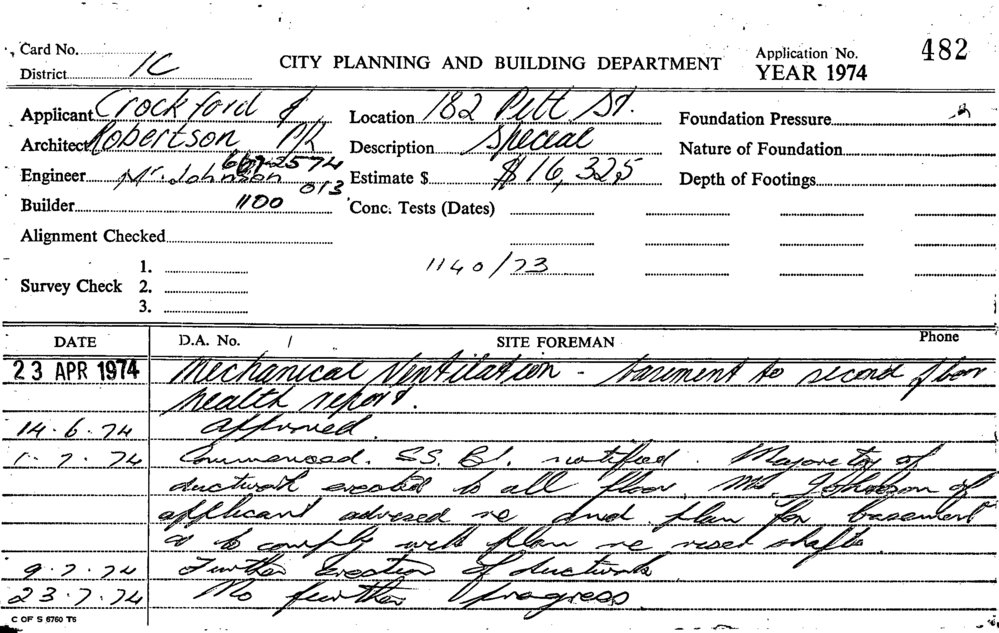 Card No.
District 1C
CITY PLANNING AND BUILDING DEPARTMENT
Application No. 482
YEAR 1974
Applicant Crockford &
Architect Robertson P/L
Engineer Mr. Johnson 667-2574
013
Builder 1100
Alignment Checked
Survey Check 1.
2.
3.
Location 182 Pitt St.
Description Special
Estimate $ $16,325
Conc. Tests (Dates)
1140/73
Foundation Pressure
Nature of Foundation
Depth of Footings
DATE D.A. No. / SITE FOREMAN Phone
23 APR 1974 Mechanical Ventilation - basement to second floor
health report.
14.6.74 approved.
1.7.74 Commenced. SS. B.I. notified. Majority of
ductwork erected to all floor. Mr. Johnson of
applicant advised re dud. plan for basement
& to comply with plan re riser shafts.
9.7.74 Further erection of ductwork
23.7.74 No further progress
C OF S 6760 T6